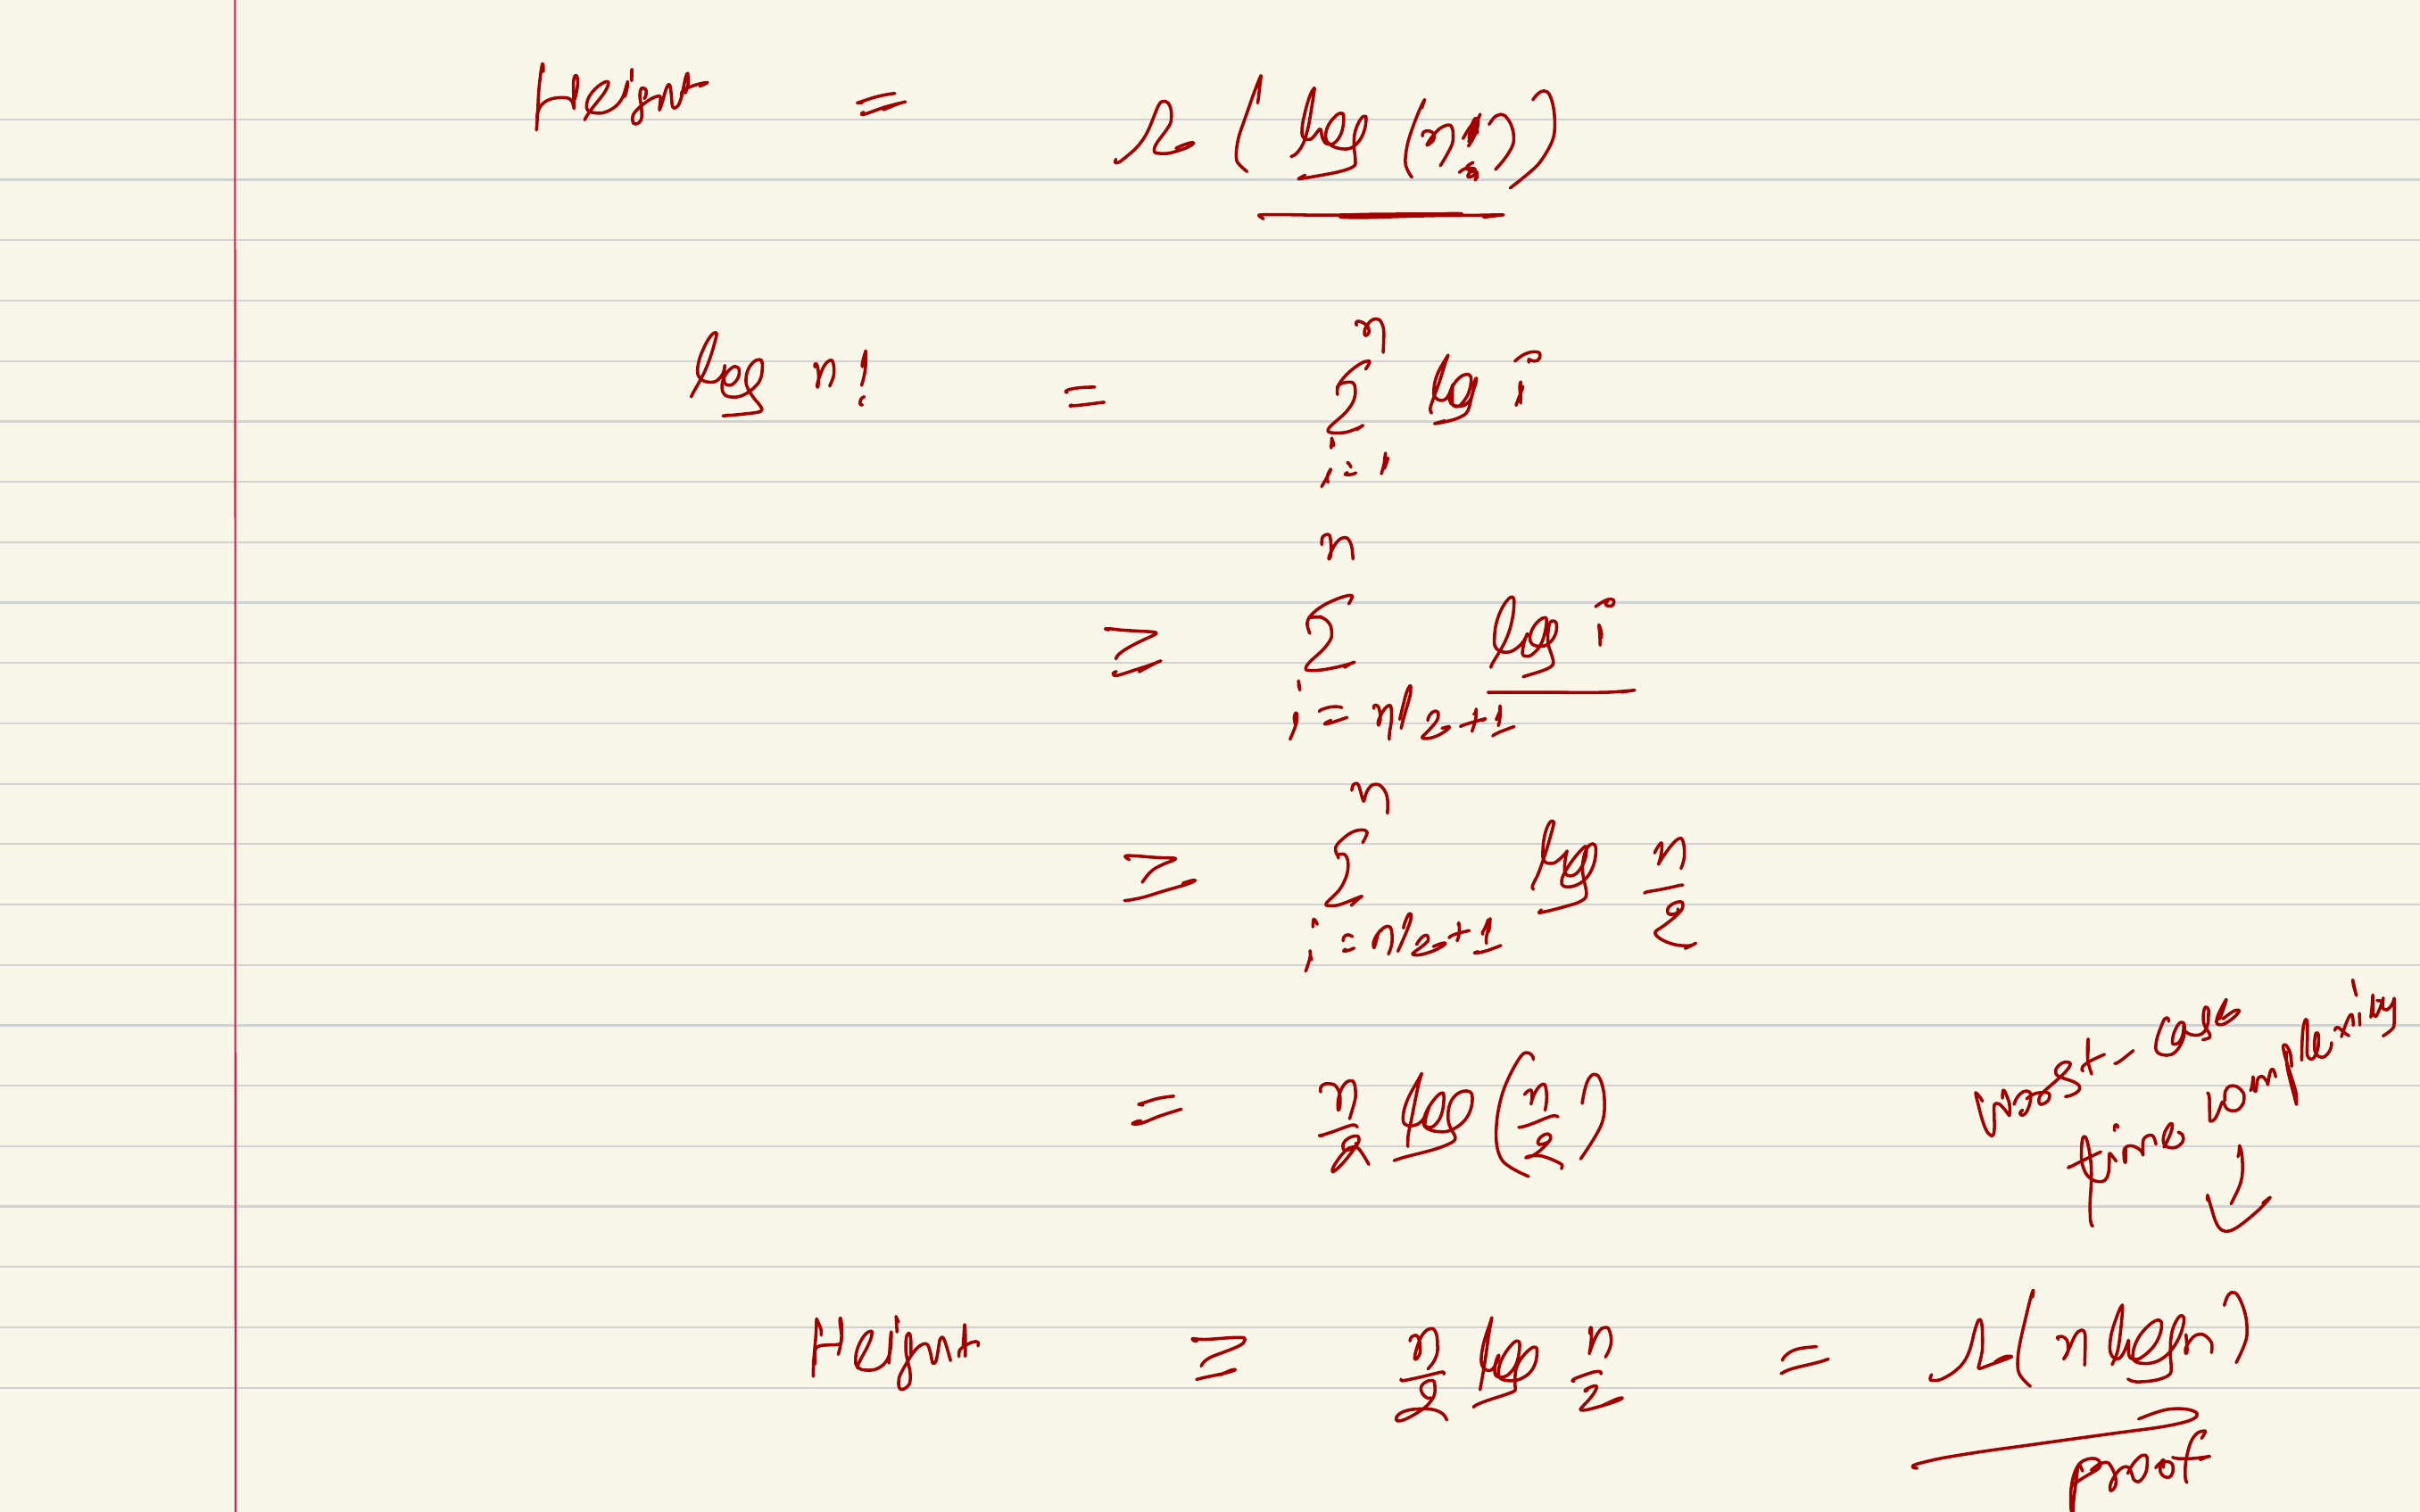 Height = Ω(log(n!))
log n! = n Σ i=1 log i
≥ n Σ i=n/2+1 log i
≥ n Σ i=n/2+1 log n/2
= n/2 log(n/2)
Worst-case
time complexity
↓
Height ≥ n/2 log n/2 = Ω(n log n)
proof